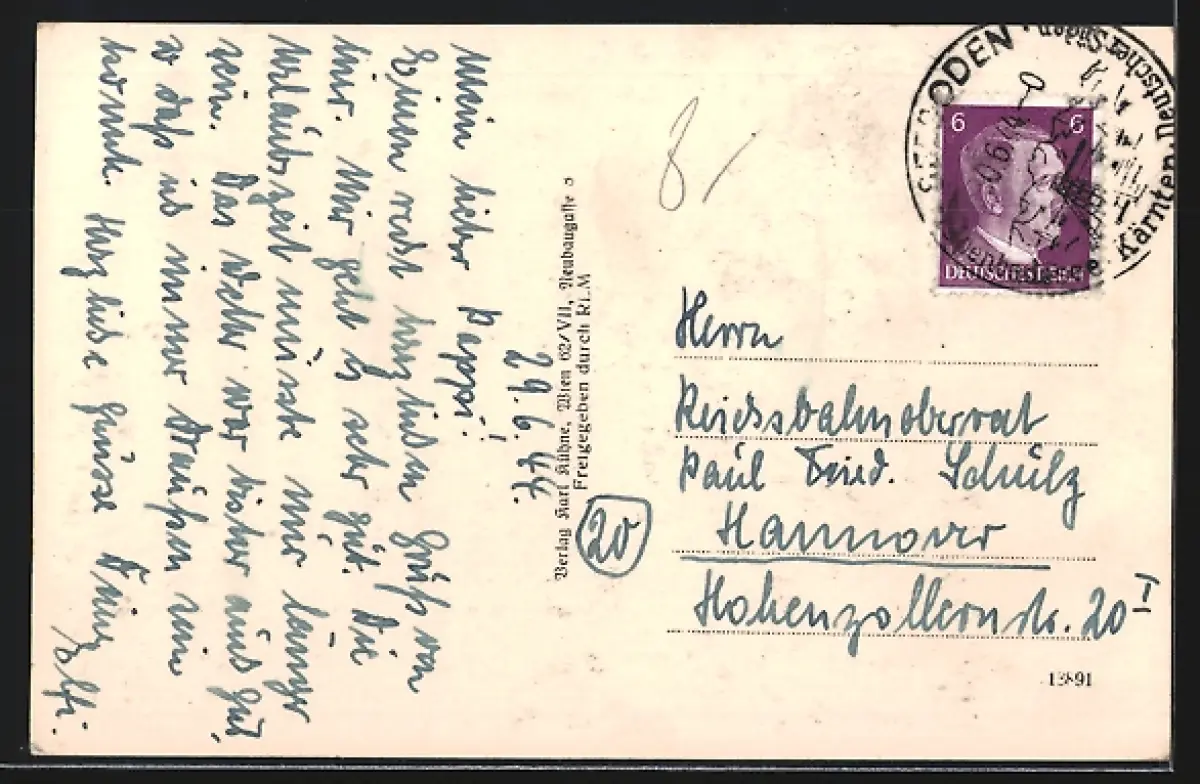 29.6.44.
Mein lieber Pappi!
Einen recht herzlichen Gruß von
hier. Mir geht es sehr gut. Die
Urlaubszeit müsste nur länger
sein. Das Wetter war bisher auch gut,
so daß ich immer draußen sein
konnte. Herzliche Grüsse Deine
Verlag Karl Kühne, Wien 62/VII, Neubaugasse 8
Freigegeben durch RLM
8
SEEBODEN
Deutscher Süden
Kärnten
6 6
DEUTSCHES REICH
Herrn
Reichsbahnoberrat
Paul Fried. Schulz
20
Hannover
Hohenzollernstr. 20 I
13891